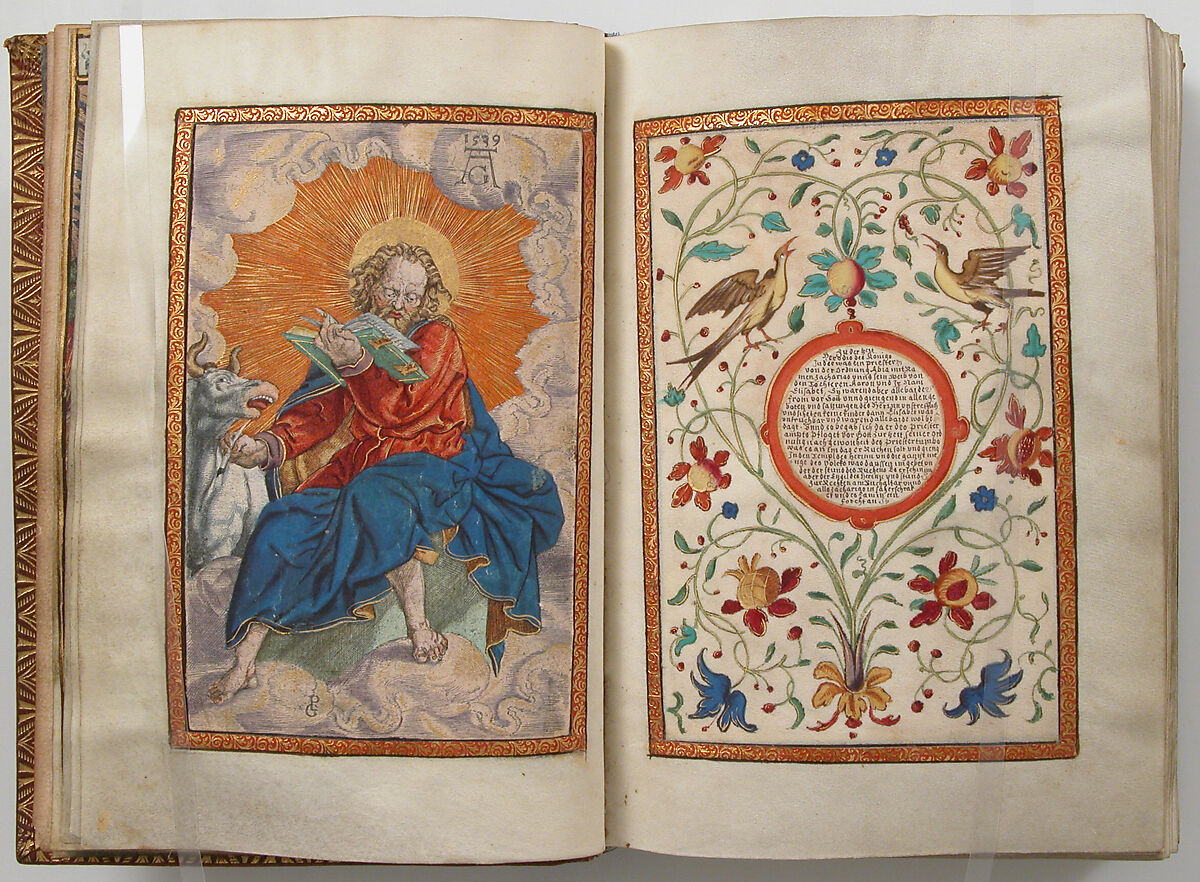 1539
AG
PG
Zu der
Herodis des Königs
In der was ein priester
von der Ordnung Abia mit Na
men Zacharias vnnd sein Weib von
den Töchteren Aaron vnd Ir Nam
Elisabet, waren aber alle
from vor Gott vnnd giengend in allen ge
boten vnd satzungen des Herren vnstrefflich
kinder dann Elisabet was
vnd waren alle baide wol be
tagt. Vnnd es begab sich da er des priester
ambts pfleget vor Gott zur Zeit seiner ord
nung nach gewonheit des Priestertumbs
was es an Im das er Ruchen solt vnd gieng
In den Tempel des Herren vnd die gantze me
nge des Volcks was daussen im gebet vn
der der stund des Ruchens Es erschin Im
aber der Engel des Herren vnd stund
zur Rechten am Ruchaltar vnnd
als Zacharias in sahe erschrack
er vnd es kam in ein
forcht an